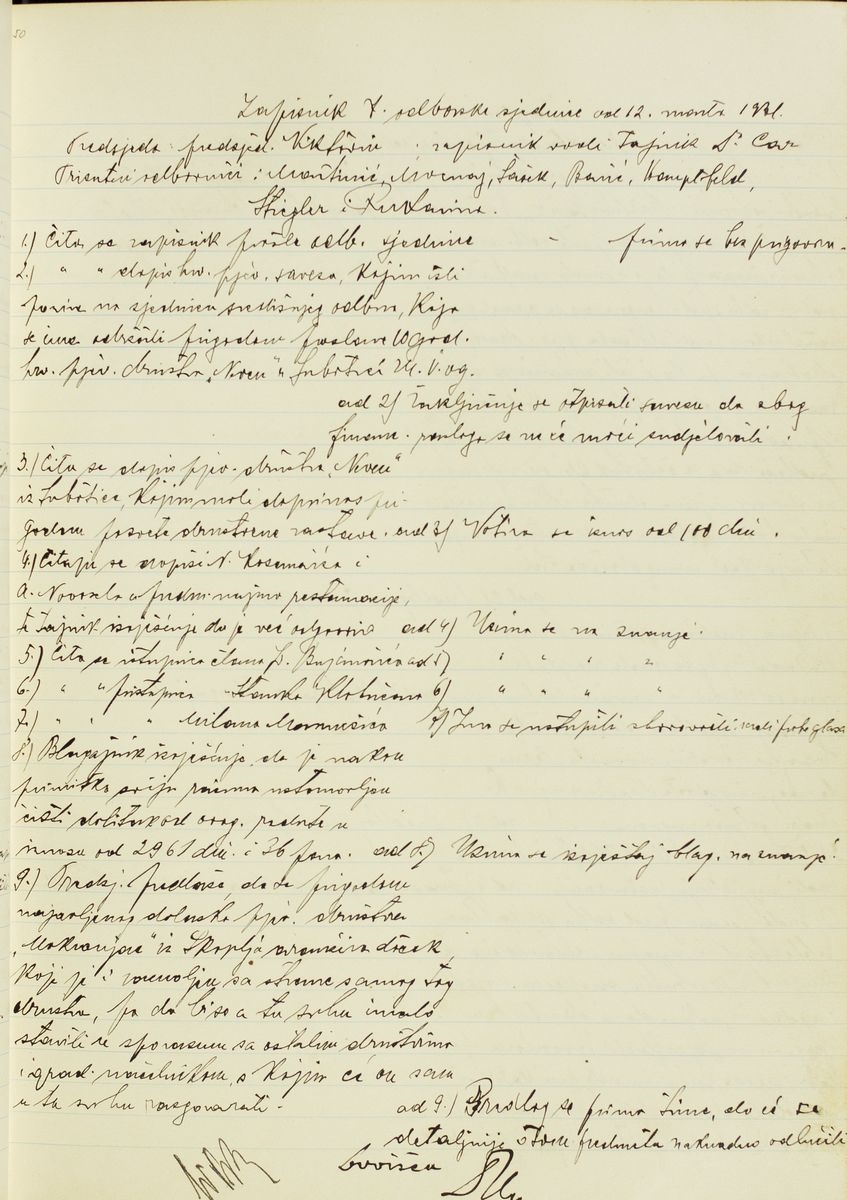 50
Zapisnik 7. odborske sjednice od 12. marta 1931.
Predsjeda: predsjed. Viktorin zapisnik vodi Tajnik Dr. Car
Prisutni odbornici: Martinić, Močnaj, Šašek, Banić, Hampfeld,
Stiegler i Ružarina.
1.) Čita se zapisnik prošle odb. sjednice - prima se bez prigovora.
2.) " " dopis hrv. pjev. saveza, kojim isti
poziva na sjednicu središnjeg odbora, koja
se ima održati prigodom proslave 10 god.
hrv. pjev. društva "Neven" u Subotici 24. V. og.
ad 2) Zaključuje se otpisati savezu da zbog
financ. razloga se neće moći sudjelovati.
3.) Čita se dopis pjev. društva "Neven"
iz Subotice, kojim moli doprinos pri-
godom posvete društvene zastave. ad 3) Votira se iznos od 100 din.
4.) Čitaju se dopisi N. Kosanića i
A. Novosela u predm. najma restauracije,
Tajnik izvješćuje da je već odgovorio ad 4) Uzima se na znanje.
5.) Čita se istupnica člana ad 5) " " " "
6.) " " pristupnica Stanka Klobučara 6) " " " "
7.) " " " Milana 7) Ima se nastupiti zborovođi radi probe glasa
8.) Blagajnik izvješćuje, da je nakon
primitka sviju računa ustanovljen
čisti dobitak od ovog. redute u
iznosu od 2961 din. i 36 para. ad 8) Uzima se izvještaj blag. na znanje.
9.) Predsj. predlaže, da se prigodom
najavljenog dolaska pjev. društva
"Mokranjac" iz Skoplja aranžira doček,
koji je i zamoljen sa strane samog tog
društva, pa da bi se u tu svrhu imalo
staviti u sporazum sa ostalim društvima
i grad. načelnikom, s kojim će on sam
u tu svrhu razgovarati. ad 9.) Predlog se prima time, da će se
detaljnije o tom predmetu naknadno odlučiti
Dovršeno